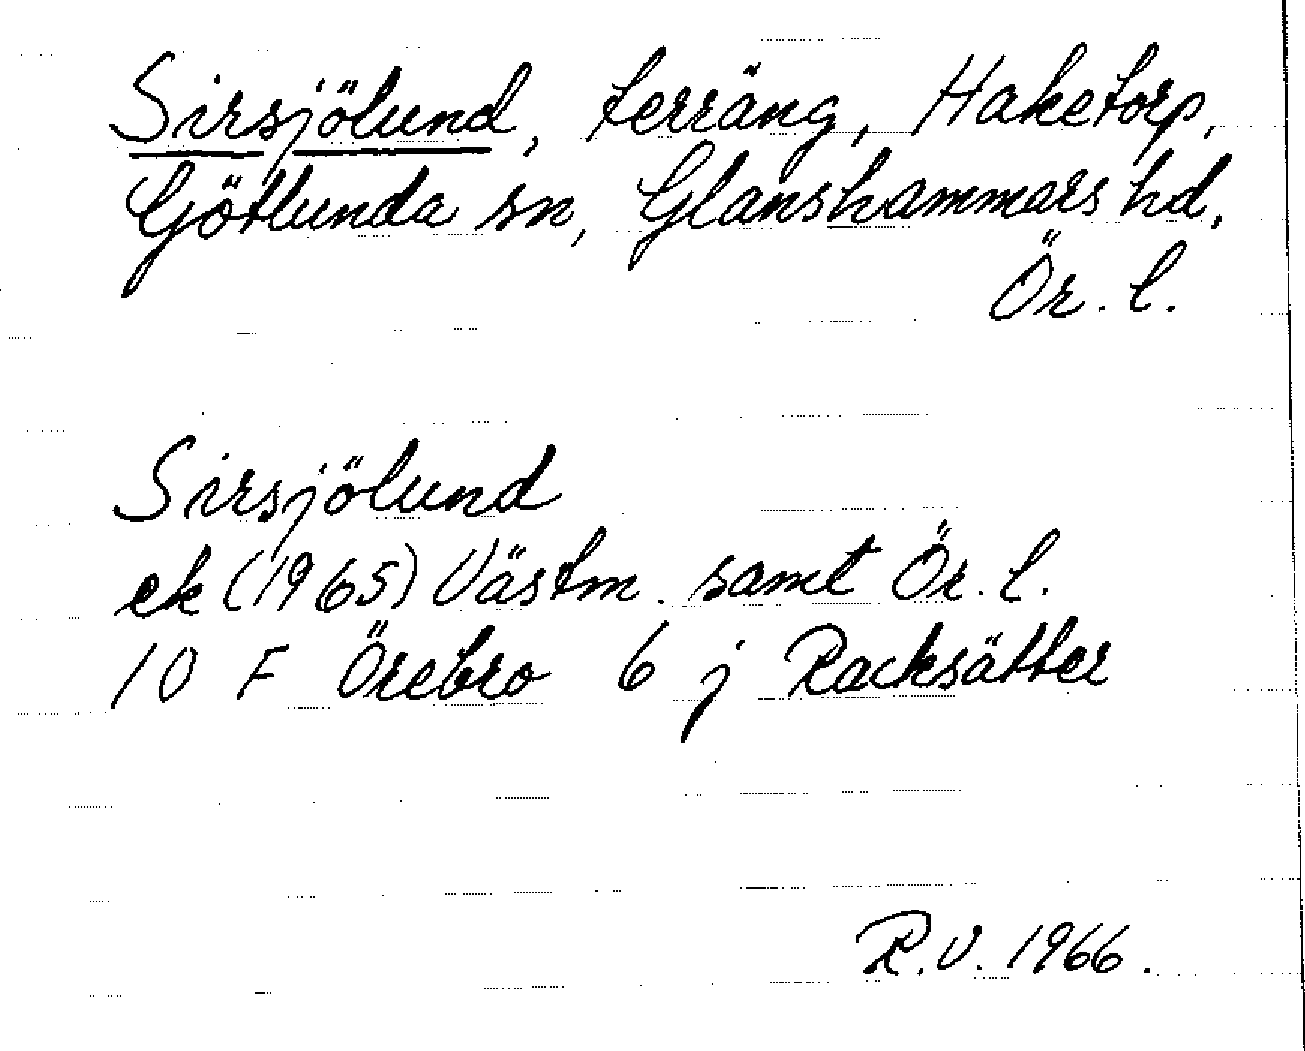 Sirsjölund, terräng, Haketorp,
Götlunda sn, Glanshammars hd,
Ör. l.
Sirsjölund
ek (1965) Västm. samt Ör. l.
10 F Örebro 6 j Racksätter
R.V. 1966.